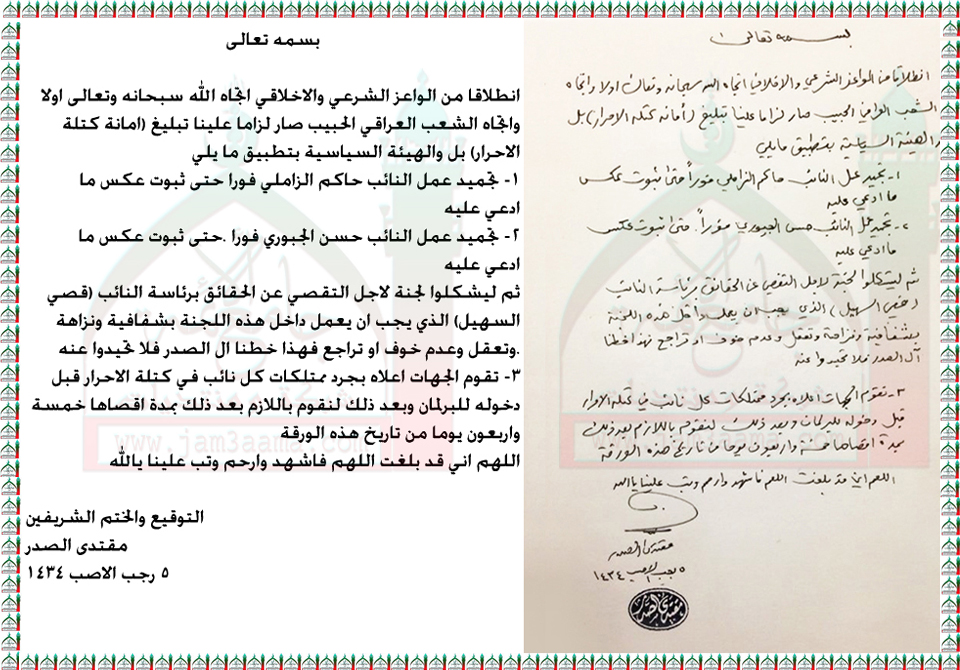 بسمه تعالى
انطلاقا من الواعز الشرعي والاخلاقي اتجاه الله سبحانه وتعالى اولا
واتجاه الشعب العراقي الحبيب صار لزاما علينا تبليغ (امانة كتلة
الاحرار) بل والهيئة السياسية بتطبيق ما يلي
١- تجميد عمل النائب حاكم الزاملي فورا حتى ثبوت عكس ما
ادعي عليه
٢- تجميد عمل النائب حسن الجبوري فورا .حتى ثبوت عكس ما
ادعي عليه
ثم ليشكلوا لجنة لاجل التقصي عن الحقائق برئاسة النائب (قصي
السهيل) الذي يجب ان يعمل داخل هذه اللجنة بشفافية ونزاهة
.وتعقل وعدم خوف او تراجع فهذا خطنا ال الصدر فلا تحيدوا عنه
٣- تقوم الجهات اعلاه بجرد ممتلكات كل نائب في كتلة الاحرار قبل
دخوله للبرلمان وبعد ذلك لنقوم باللازم بعد ذلك بمدة اقصاها خمسة
واربعون يوما من تاريخ هذه الورقة
اللهم اني قد بلغت اللهم فاشهد وارحم وتب علينا يالله
التوقيع والختم الشريفين
مقتدى الصدر
٥ رجب الاصب ١٤٣٤
www.jam3aama.com
بسمه تعالى
انطلاقا من الواعز الشرعي والاخلاقي اتجاه الله سبحانه وتعالى اولا واتجاه
الشعب العراقي الحبيب صار لزاما علينا تبليغ (أمانة كتلة الاحرار) بل
والهيئة السياسية بتطبيق مايلي
١- تجميد عمل النائب حاكم الزاملي فوراً حتى ثبوت عكس
ما ادعي عليه
٢- تجميد عمل النائب حسن الجبوري فوراً. حتى ثبوت عكس
ما ادعي عليه
ثم ليشكلوا لجنة لاجل التقصي عن الحقائق برئاسة النائب
(قصي السهيل) الذي يجب ان يعمل داخل هذه اللجنة
بشفافية ونزاهة وتعقل وعدم خوف او تراجع فهذا خطنا
آل الصدر فلا تحيدوا عنه
٣- تقوم الجهات اعلاه بجرد ممتلكات كل نائب في كتلة الاحرار
قبل دخوله للبرلمان وبعد ذلك لنقوم باللازم بعد ذلك
بمدة اقصاها خمسة واربعون يوما من تاريخ هذه الورقة
اللهم اني قد بلغت اللهم فاشهد وارحم وتب علينا ياالله
مقتدى الصدر
٥ رجب الاصب ١٤٣٤
مقتدى الصدر